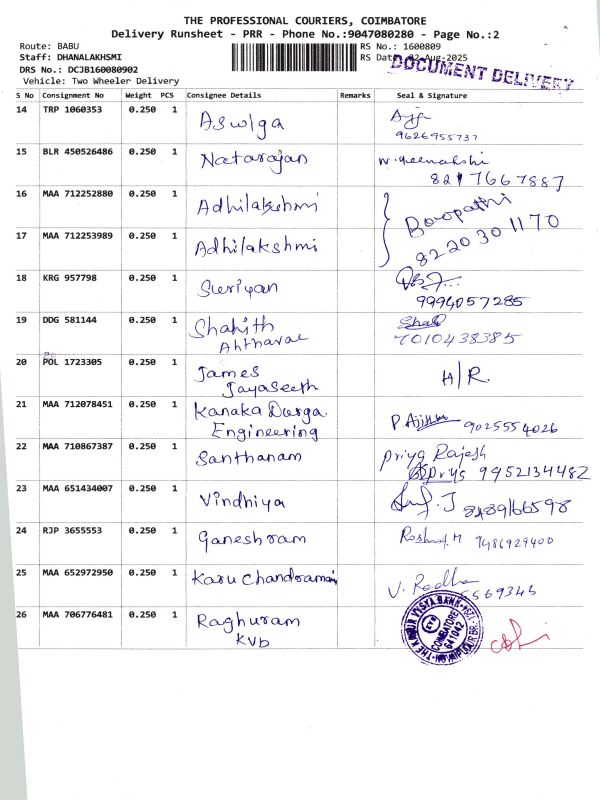 THE PROFESSIONAL COURIERS, COIMBATORE
Delivery Runsheet - PRR - Phone No.:9047080280 - Page No.:2
Route: BABU
RS No.: 1600809
Staff: DHANALAKHSMI
RS Date: 02-Aug-2025
DOCUMENT DELIVERY
DRS No.: DCJB160080902
Vehicle: Two Wheeler Delivery
S No Consignment No Weight PCS Consignee Details Remarks Seal & Signature
14 TRP 1060353 0.250 1 Aswiga
9626955737
15 BLR 450526486 0.250 1 Natarajan
8217667887
16 MAA 712252880 0.250 1 Adhilakshmi Boopathi
8220301170
17 MAA 712253989 0.250 1 Adhilakshmi
18 KRG 957798 0.250 1 Suriyan
9994057285
19 DDG 581144 0.250 1 Shahith
Ahtharae
7010438385
20 POL 1723305 0.250 1 James
Jayaseeth H/R.
21 MAA 712078451 0.250 1 Kanaka Durga
Engineering 9025554026
22 MAA 710867387 0.250 1 Santhanam Priya Rajesh
9952134482
23 MAA 651434007 0.250 1 Vindhiya
8489166598
24 RJP 3655553 0.250 1 Ganeshram
7486929400
25 MAA 652972950 0.250 1 Karu Chandraman V. Radha
569345
26 MAA 706776481 0.250 1 Raghuram
KVB
THE KARUR VYSYA BANK
COIMBATORE
641042